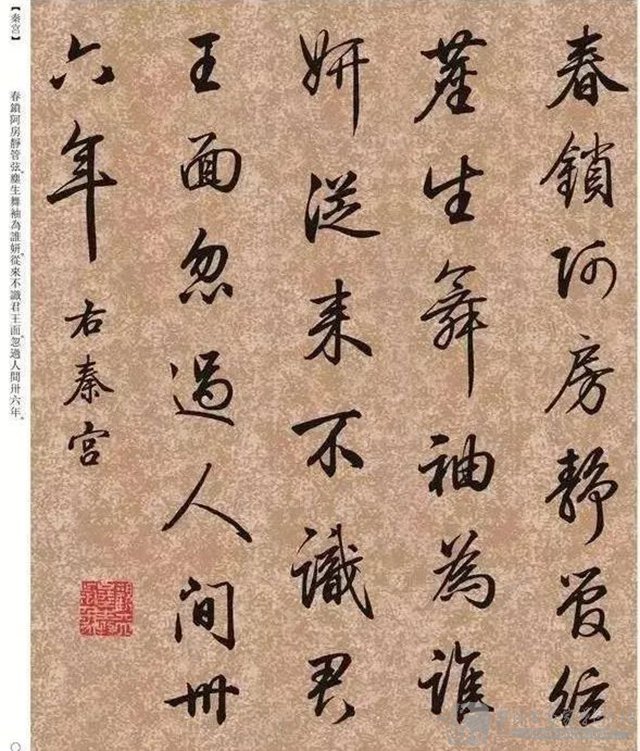 春鎖阿房靜管絃
塵生舞袖為誰
妍從来不識君
王面忽過人间卅
六年
右秦宮
【秦宮】
春鎖阿房靜管弦。塵生舞袖為誰妍。從來不識君王面。忽過人間卅六年。